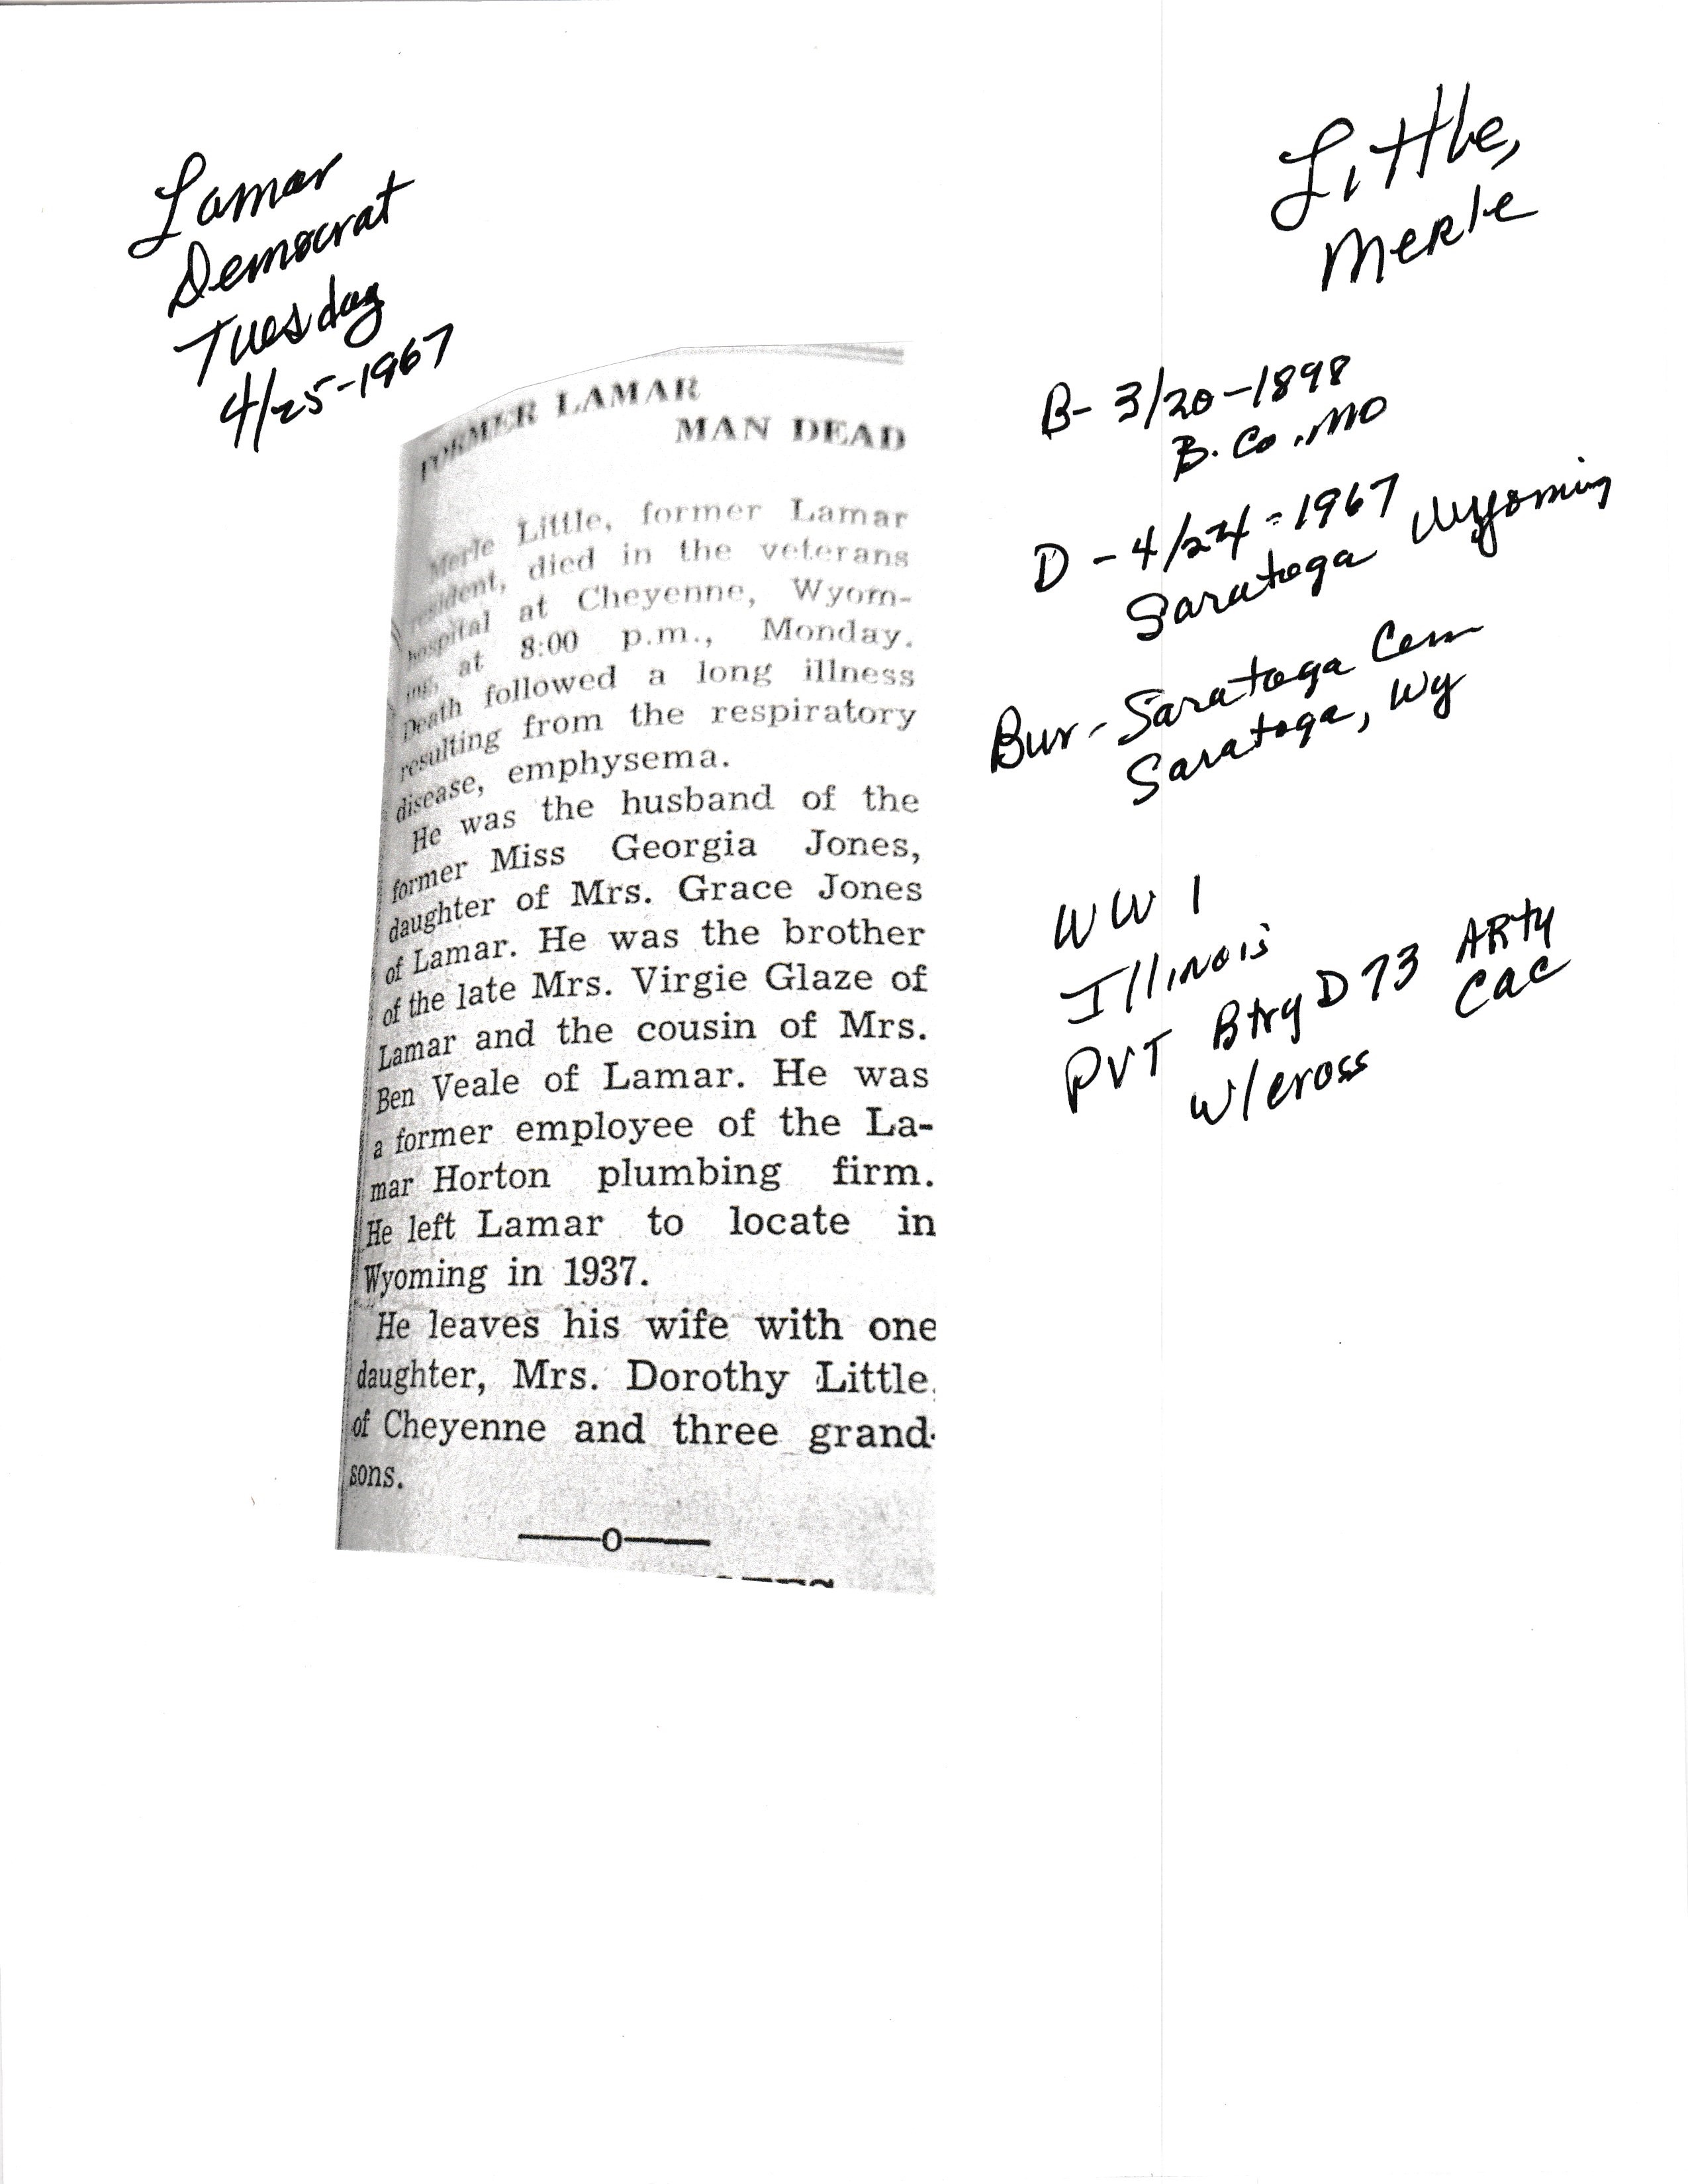 Lamar
Democrat
Tuesday
4/25-1967
Little,
Merle
B- 3/20-1898
B. Co. MO
D - 4/24-1967
Saratoga Wyoming
Bur- Saratoga Cem
Saratoga, Wy
WW 1
Illinois
PVT Btry D 73 ARTY
CAC
w/cross
FORMER LAMAR
MAN DEAD
Merle Little, former Lamar
resident, died in the veterans
hospital at Cheyenne, Wyom-
ing, at 8:00 p.m., Monday.
Death followed a long illness
resulting from the respiratory
disease, emphysema.
He was the husband of the
former Miss Georgia Jones,
daughter of Mrs. Grace Jones
of Lamar. He was the brother
of the late Mrs. Virgie Glaze of
Lamar and the cousin of Mrs.
Ben Veale of Lamar. He was
a former employee of the La-
mar Horton plumbing firm.
He left Lamar to locate in
Wyoming in 1937.
He leaves his wife with one
daughter, Mrs. Dorothy Little,
of Cheyenne and three grand-
sons.
——O——